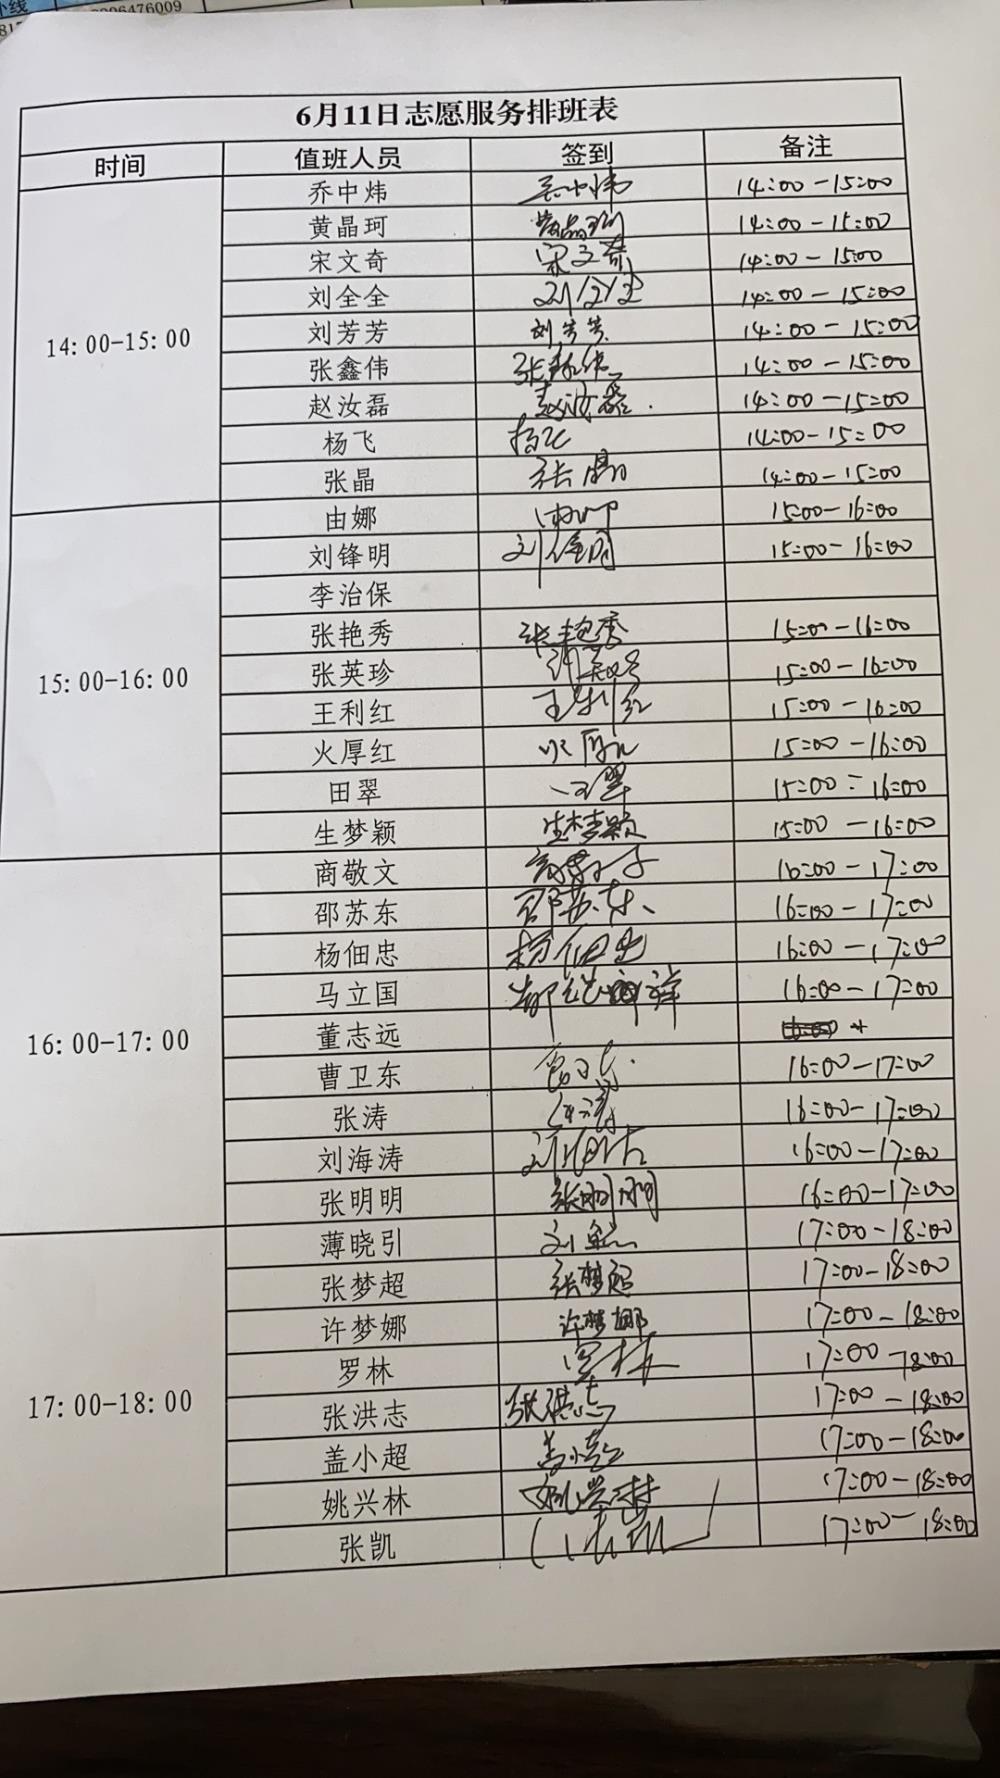 6月11日志愿服务排班表
时间 值班人员 签到 备注
14:00-15:00
乔中炜 14:00-15:00
黄晶珂 黄晶珂 14:00-15:00
宋文奇 宋文奇 14:00-15:00
刘全全 14:00-15:00
刘芳芳 刘芳芳 14:00-15:00
张鑫伟 张鑫伟 14:00-15:00
赵汝磊 赵汝磊 14:00-15:00
杨飞 杨飞 14:00-15:00
张晶 张晶 14:00-15:00
15:00-16:00
由娜 由娜 15:00-16:00
刘锋明 刘锋明 15:00-16:00
李治保
张艳秀 张艳秀 15:00-16:00
张英珍 15:00-16:00
王利红 王利红 15:00-16:00
火厚红 火厚红 15:00-16:00
田翠 田翠 15:00-16:00
生梦颖 生梦颖 15:00-16:00
16:00-17:00
商敬文 16:00-17:00
邵苏东 邵苏东 16:00-17:00
杨佃忠 杨佃忠 16:00-17:00
马立国 16:00-17:00
董志远
曹卫东 16:00-17:00
张涛 张涛 16:00-17:00
刘海涛 刘海涛 16:00-17:00
张明明 张明明 16:00-17:00
17:00-18:00
薄晓引 17:00-18:00
张梦超 张梦超 17:00-18:00
许梦娜 许梦娜 17:00-18:00
罗林 罗林 17:00-18:00
张洪志 张洪志 17:00-18:00
盖小超 盖小超 17:00-18:00
姚兴林 姚兴林 17:00-18:00
张凯 张凯 17:00-18:00